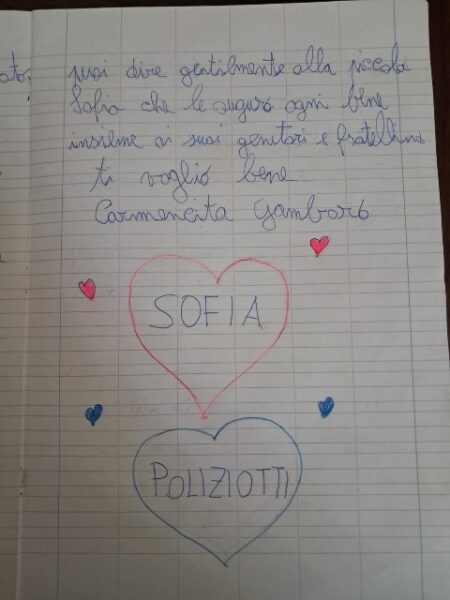 ato,
puoi dire gentilmente alla piccola
Sofia che le auguro ogni bene
insieme ai suoi genitori e fratellino
ti voglio bene
Carmencita Gamboro
SOFIA
POLIZIOTTI